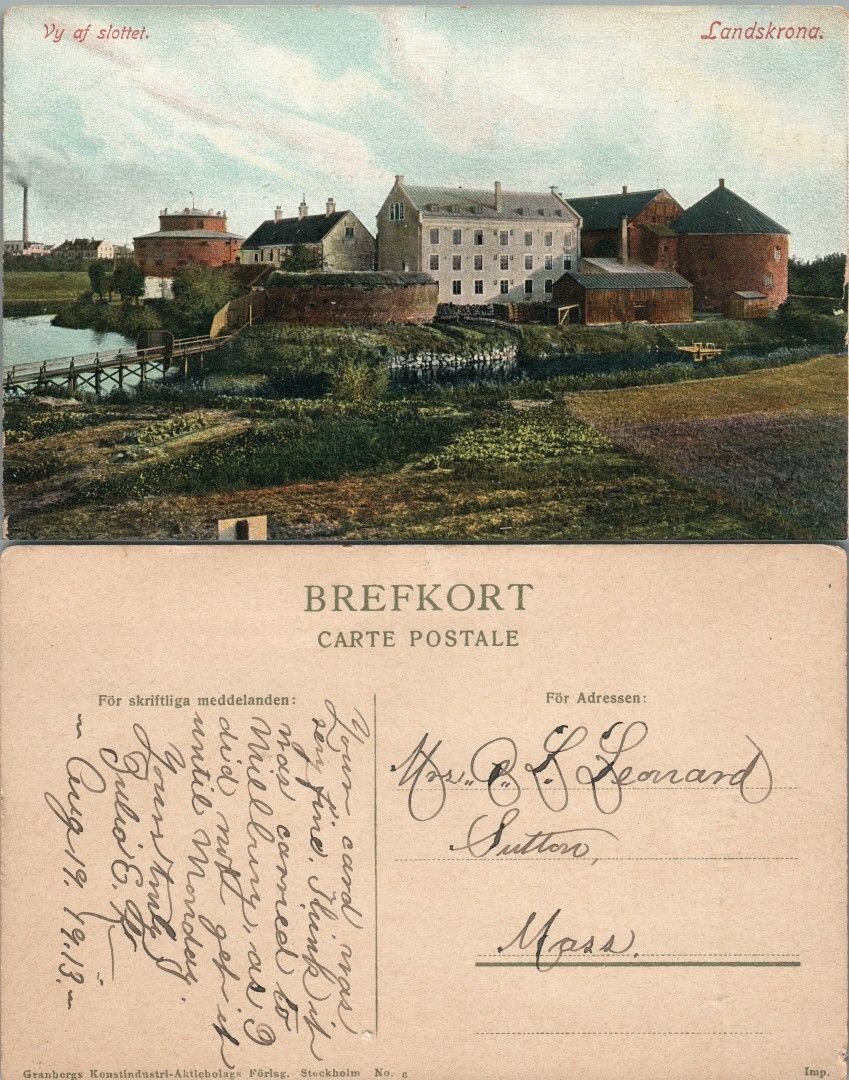 Vy af slottet.
Landskrona.
BREFKORT
CARTE POSTALE
För skriftliga meddelanden:
Your card was
very fine. Think it
was carried to
Millbury, as I
did not get it
until Monday.
Yours truly
Julia E.
Aug 19. 1913.
För Adressen:
Mrs. C. L. Leonard
Sutton,
Mass.
Granbergs Konstindustri-Aktiebolags Förlag. Stockholm No. 6
Imp.